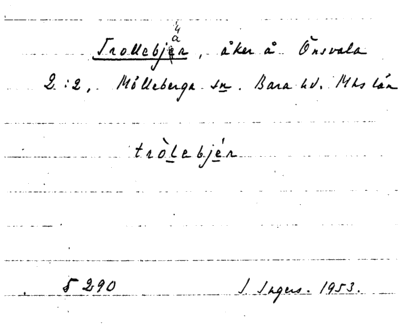 Trollebjär, åker å Önsvala
2:2, Mölleberga sn. Bara hd. Mhs län
tròlebjér
5290 I. Ingers. 1953.